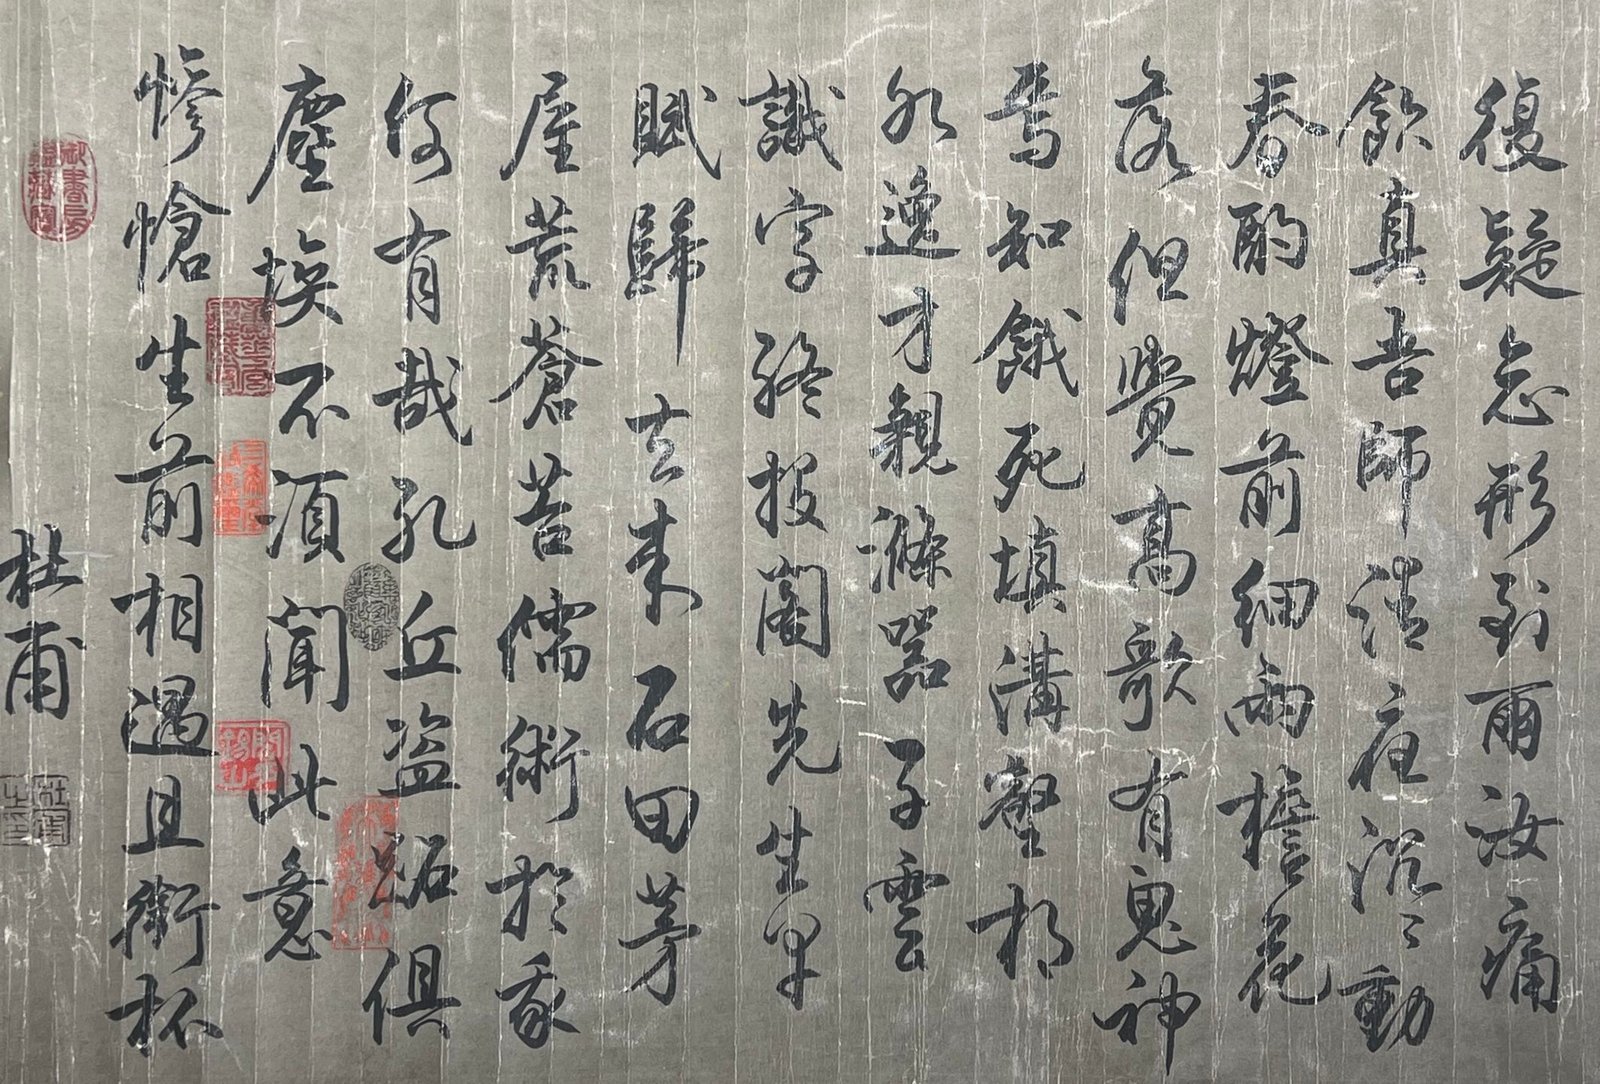 復疑忘形到爾汝痛
飲真吾師清夜沉々動
春酌燈前細雨檐花
落但覺高歌有鬼神
焉知餓死填溝壑相
如逸才親滌器子雲
識字終投閣先生早
賦歸去来石田茅
屋荒蒼苔儒術於我
何有哉孔丘盗跖俱
塵埃不須聞此意
慘愴生前相遇且銜杯
杜甫
杜甫之印
御書房鑑藏寶